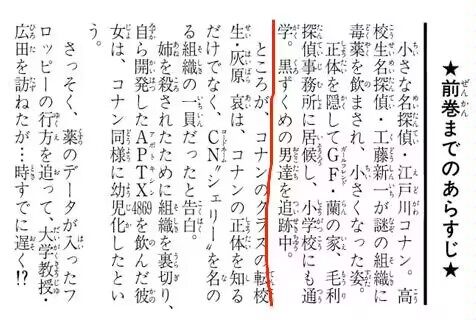 ★前巻までのあらすじ★
小さな名探偵・江戸川コナン。高
校生名探偵・工藤新一が謎の組織に
毒薬を飲まされ、小さくなった姿。
正体を隠してGF・蘭の家、毛利
探偵事務所に居候し、小学校にも通
学。黒ずくめの男達を追跡中。
ところが、コナンのクラスの転校
生・灰原 哀は、コナンの正体を知る
だけでなく、CN〝シェリー〟を名の
る組織の一員だったと告白。
姉を殺されたために組織を裏切り、
自ら開発したAPTX4869を飲んだ彼
女は、コナン同様に幼児化したとい
う。
さっそく、薬のデータが入ったフ
ロッピーの行方を追って、大学教授・
広田を訪ねたが…時すでに遅く!?